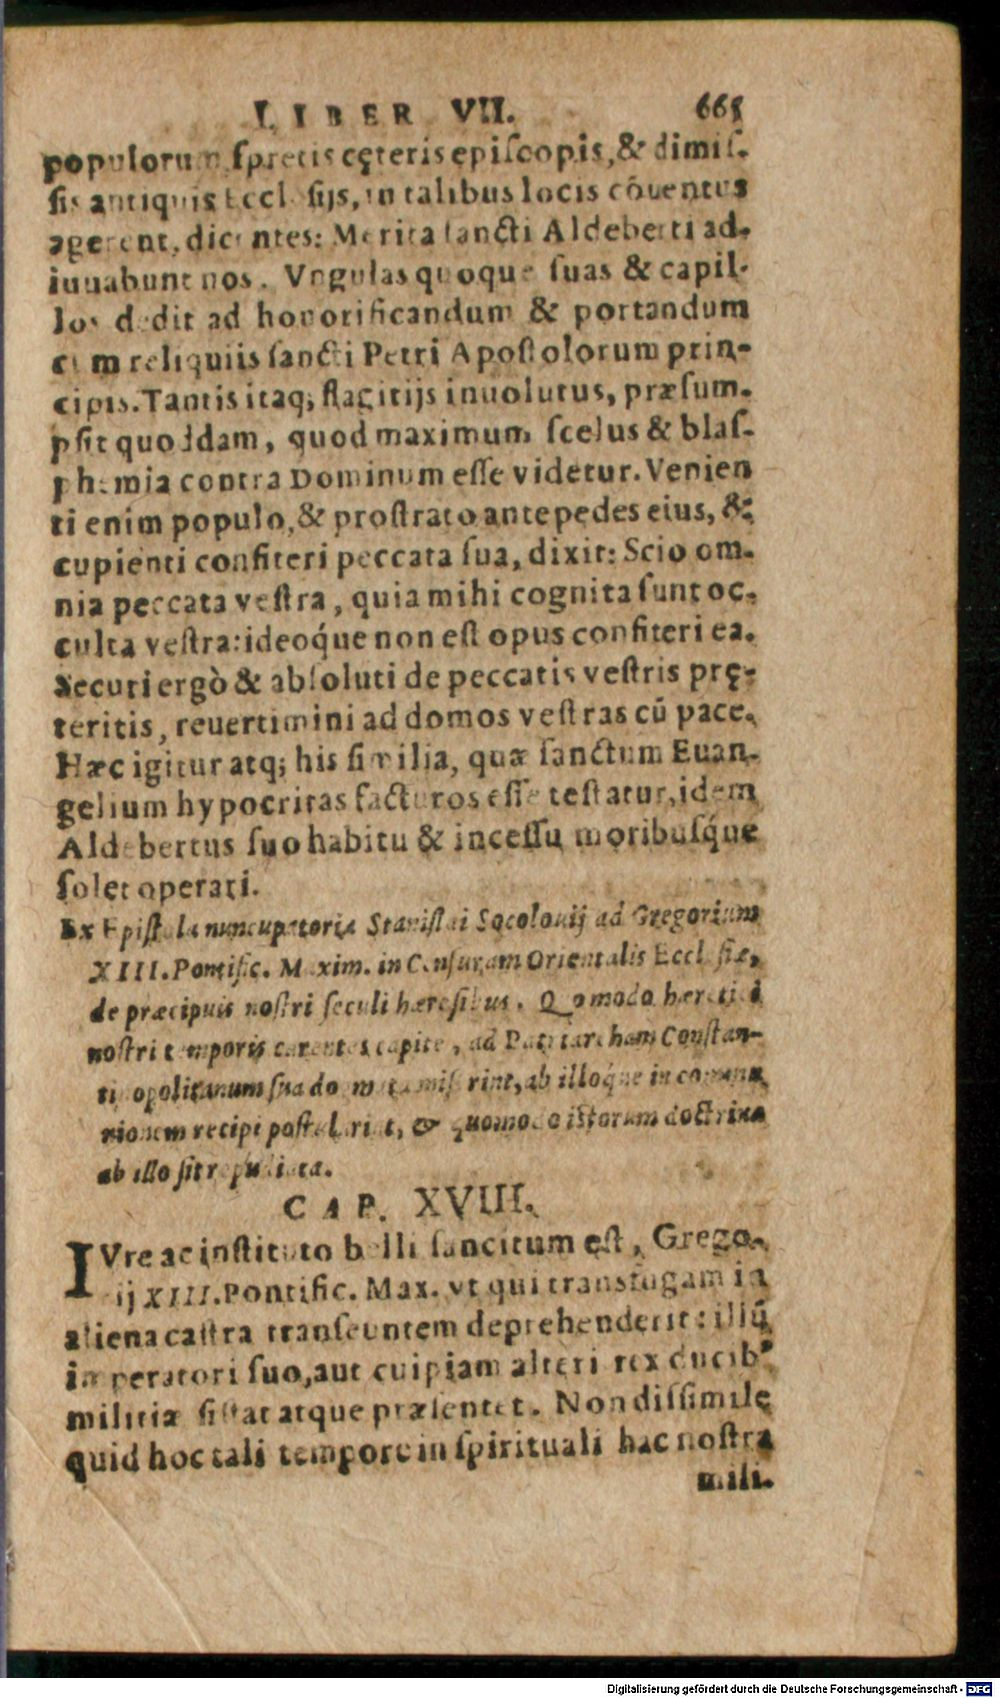 LIBER VII. 665
populorum, spretis cęteris episcopis, & dimiſ-
ſis antiquis Eccleſijs, in talibus locis cōuentus
agerent, dicentes: Merita ſancti Aldeberti ad-
iuuabunt nos. Vngulas quoque ſuas & capil-
los dedit ad honorificandum & portandum
cum reliquiis ſancti Petri Apoſtolorum prin-
cipis. Tantis itaq; flagitijs inuolutus, præſum-
pſit quoddam, quod maximum ſcelus & blaſ-
phemia contra Dominum eſſe videtur. Venien
ti enim populo, & proſtrato ante pedes eius, &
cupienti confiteri peccata ſua, dixit: Scio om-
nia peccata veſtra, quia mihi cognita ſunt oc-
culta veſtra: ideoq́ue non eſt opus confiteri ea.
Securi ergò & abſoluti de peccatis veſtris prę-
teritis, reuertimini ad domos veſtras cū pace.
Hæc igitur atq; his ſimilia, quæ ſanctum Euan-
gelium hypocritas facturos eſſe teſtatur, idem
Aldebertus ſuo habitu & inceſſu moribuſq́ue
ſolet operari.
Ex Epiſtola nuncupatoria Staniſlai Socolouij ad Gregorium
XIII. Pontific. Maxim. in Cenſuram Orientalis Eccleſiæ,
de præcipuis noſtri ſeculi hæreſibus. Quomodo hæretici
noſtri temporis carentes capite, ad Patriarcham Conſtan-
tinopolitanum ſua dogmata miſerint, ab illoque in commu-
nionem recipi poſtularint, & quomodo iſtorum doctrina
ab illo ſit repudiata.
CAP. XVIII.
IVre ac inſtituto belli ſancitum eſt, Grego-
ij XIII. Pontific. Max. vt qui transfugam in
aliena caſtra tranſeuntem deprehenderit: illū
imperatori ſuo, aut cuipiam alteri ex ducib⁹
militiæ ſiſtat atque præſentet. Non diſſimile
quid hoc tali tempore in ſpirituali hac noſtra
mili-
Digitalisierung gefördert durch die Deutsche Forschungsgemeinschaft - DFG